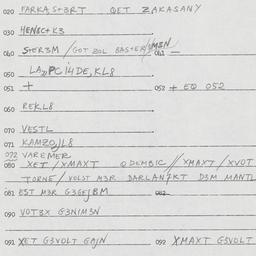 020 FARKA,S+3RT QET ZAKASANY
030 HEN8C+K3
040 S+ER3M /GOT BOL BAS+ER/ 041 —
050 LA,,PC14DE,KL8
051 + 052 + EQ 052
060 REKL8
070 VESTL
071 KAMZO,JL8
072 VAREMER
080 XET /XMAXT QDEMBIC // XMAXT /XVOT
TORNE/ VOLST M3R DARLAN7KT D3M MANTL
081 EST M3R G3GEJBM 082
090 VOT3X G3NIM3N
091 XET G3VOLT EAJN 092 XMAXT G3VOLT